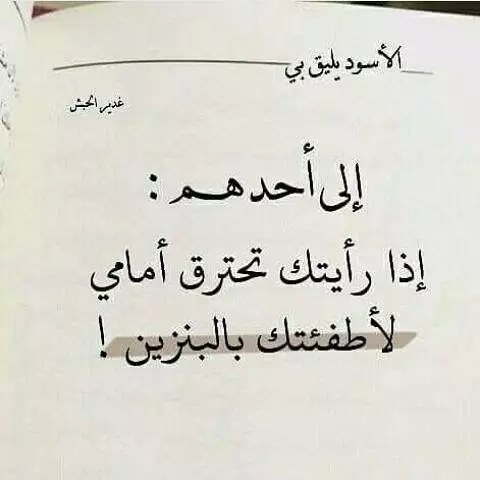 الأسود يليق بي
غدير الحبش
إلى أحدهم :
إذا رأيتك تحترق أمامي
لأطفئتك بالبنزين !